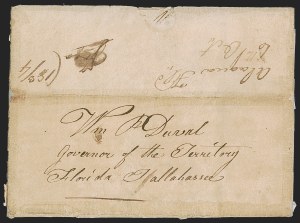 Alaqua
(1834
Wm P Duval
Governor of the Territory
Florida Tallahassee